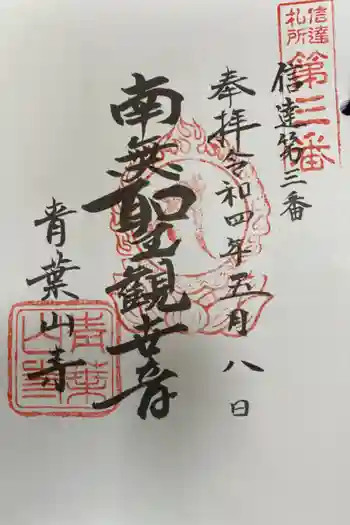 信達
札所
第三番
信達第三番
奉拝 令和四年五月八日
南無聖觀世音
青葉山寺
青葉
山寺